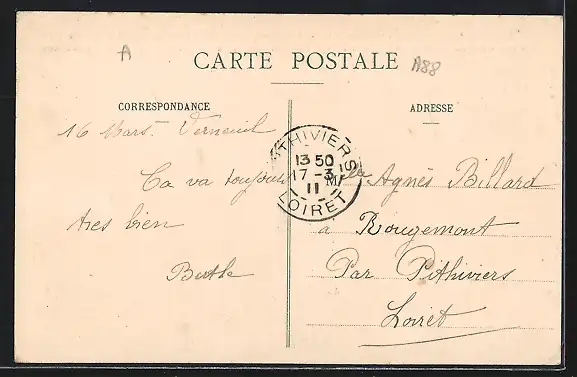 A
CARTE POSTALE
A88
CORRESPONDANCE
ADRESSE
16 Mars. Verneuil
Ça va toujours
très bien
Berthe
PITHIVIERS
13 50
17 - 3
11
LOIRET
Mlle Agnès Billard
à Rougemont
Par Pithiviers
Loiret